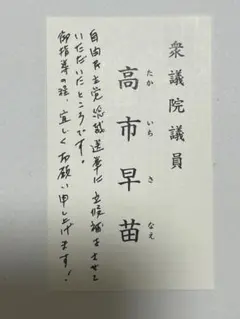 衆議院議員
高市早苗
たかいちさなえ
自由民主党総裁選挙に立候補をさせて
いただいたところです。
御指導の程、宜しくお願い申し上げます!